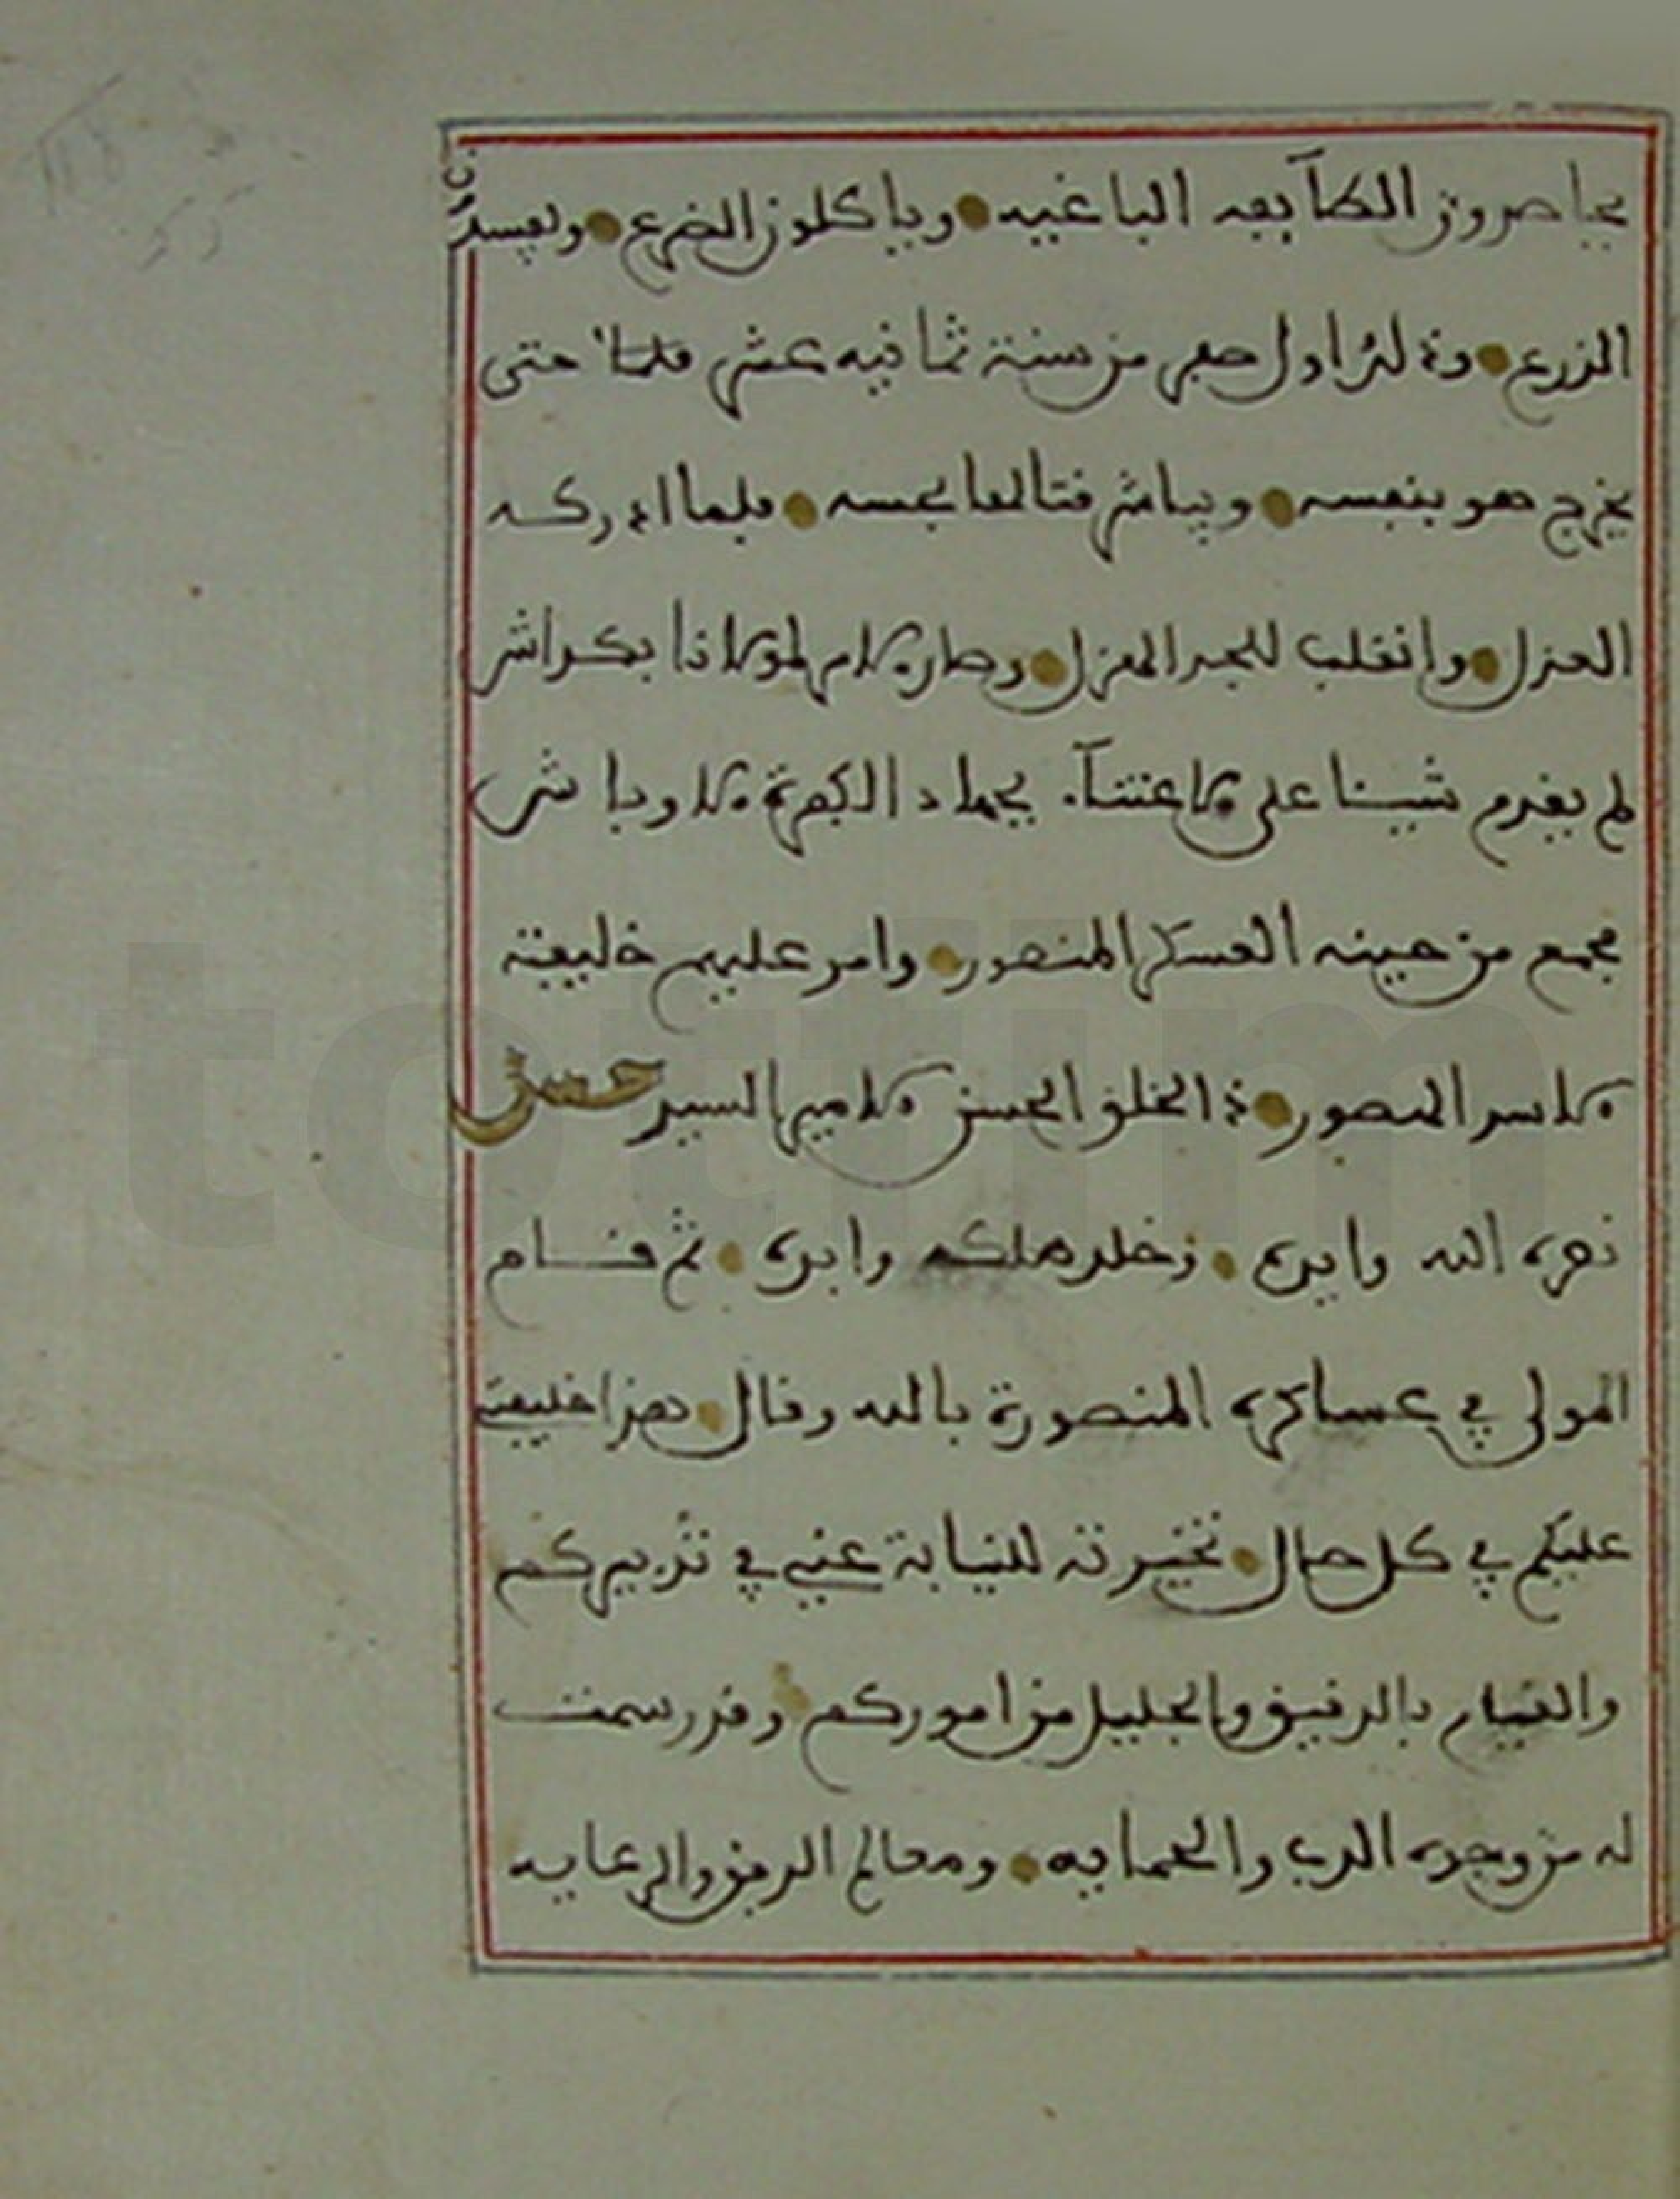 يحاصرون الطآيفه الباغيه • وياكلون الضرع • ويفسدون
الزرع • وذلك اول صفر من سنة ثمانيه عشر فلما حتى
يخرج هو بنفسه • ويباشر قتالها بحسه • فلما ادركه
العزل • وانقلب للجد الهزل • وصار
لم يقدم شيئا على الاعتنآء بجهاد الكفرة الاوباش
فجمع من حينه العسكر المنصور • وامر عليهم خليفته
الاسد الهصور • ذا الخلق الحسن الامير السيد حسن
نصره الله وايده • وخلد ملكه وابده • ثم قام
المولى في عساكره المنصورة بالله وقال • هذا خليفتي
عليكم في كل حال • تخيرته للنيابة عني في تدبيركم
والقيام بالدقيق والجليل من اموركم • وقد رسمت
له من وجوه الذب والحمايه • ومعالم الرفق والرعايه